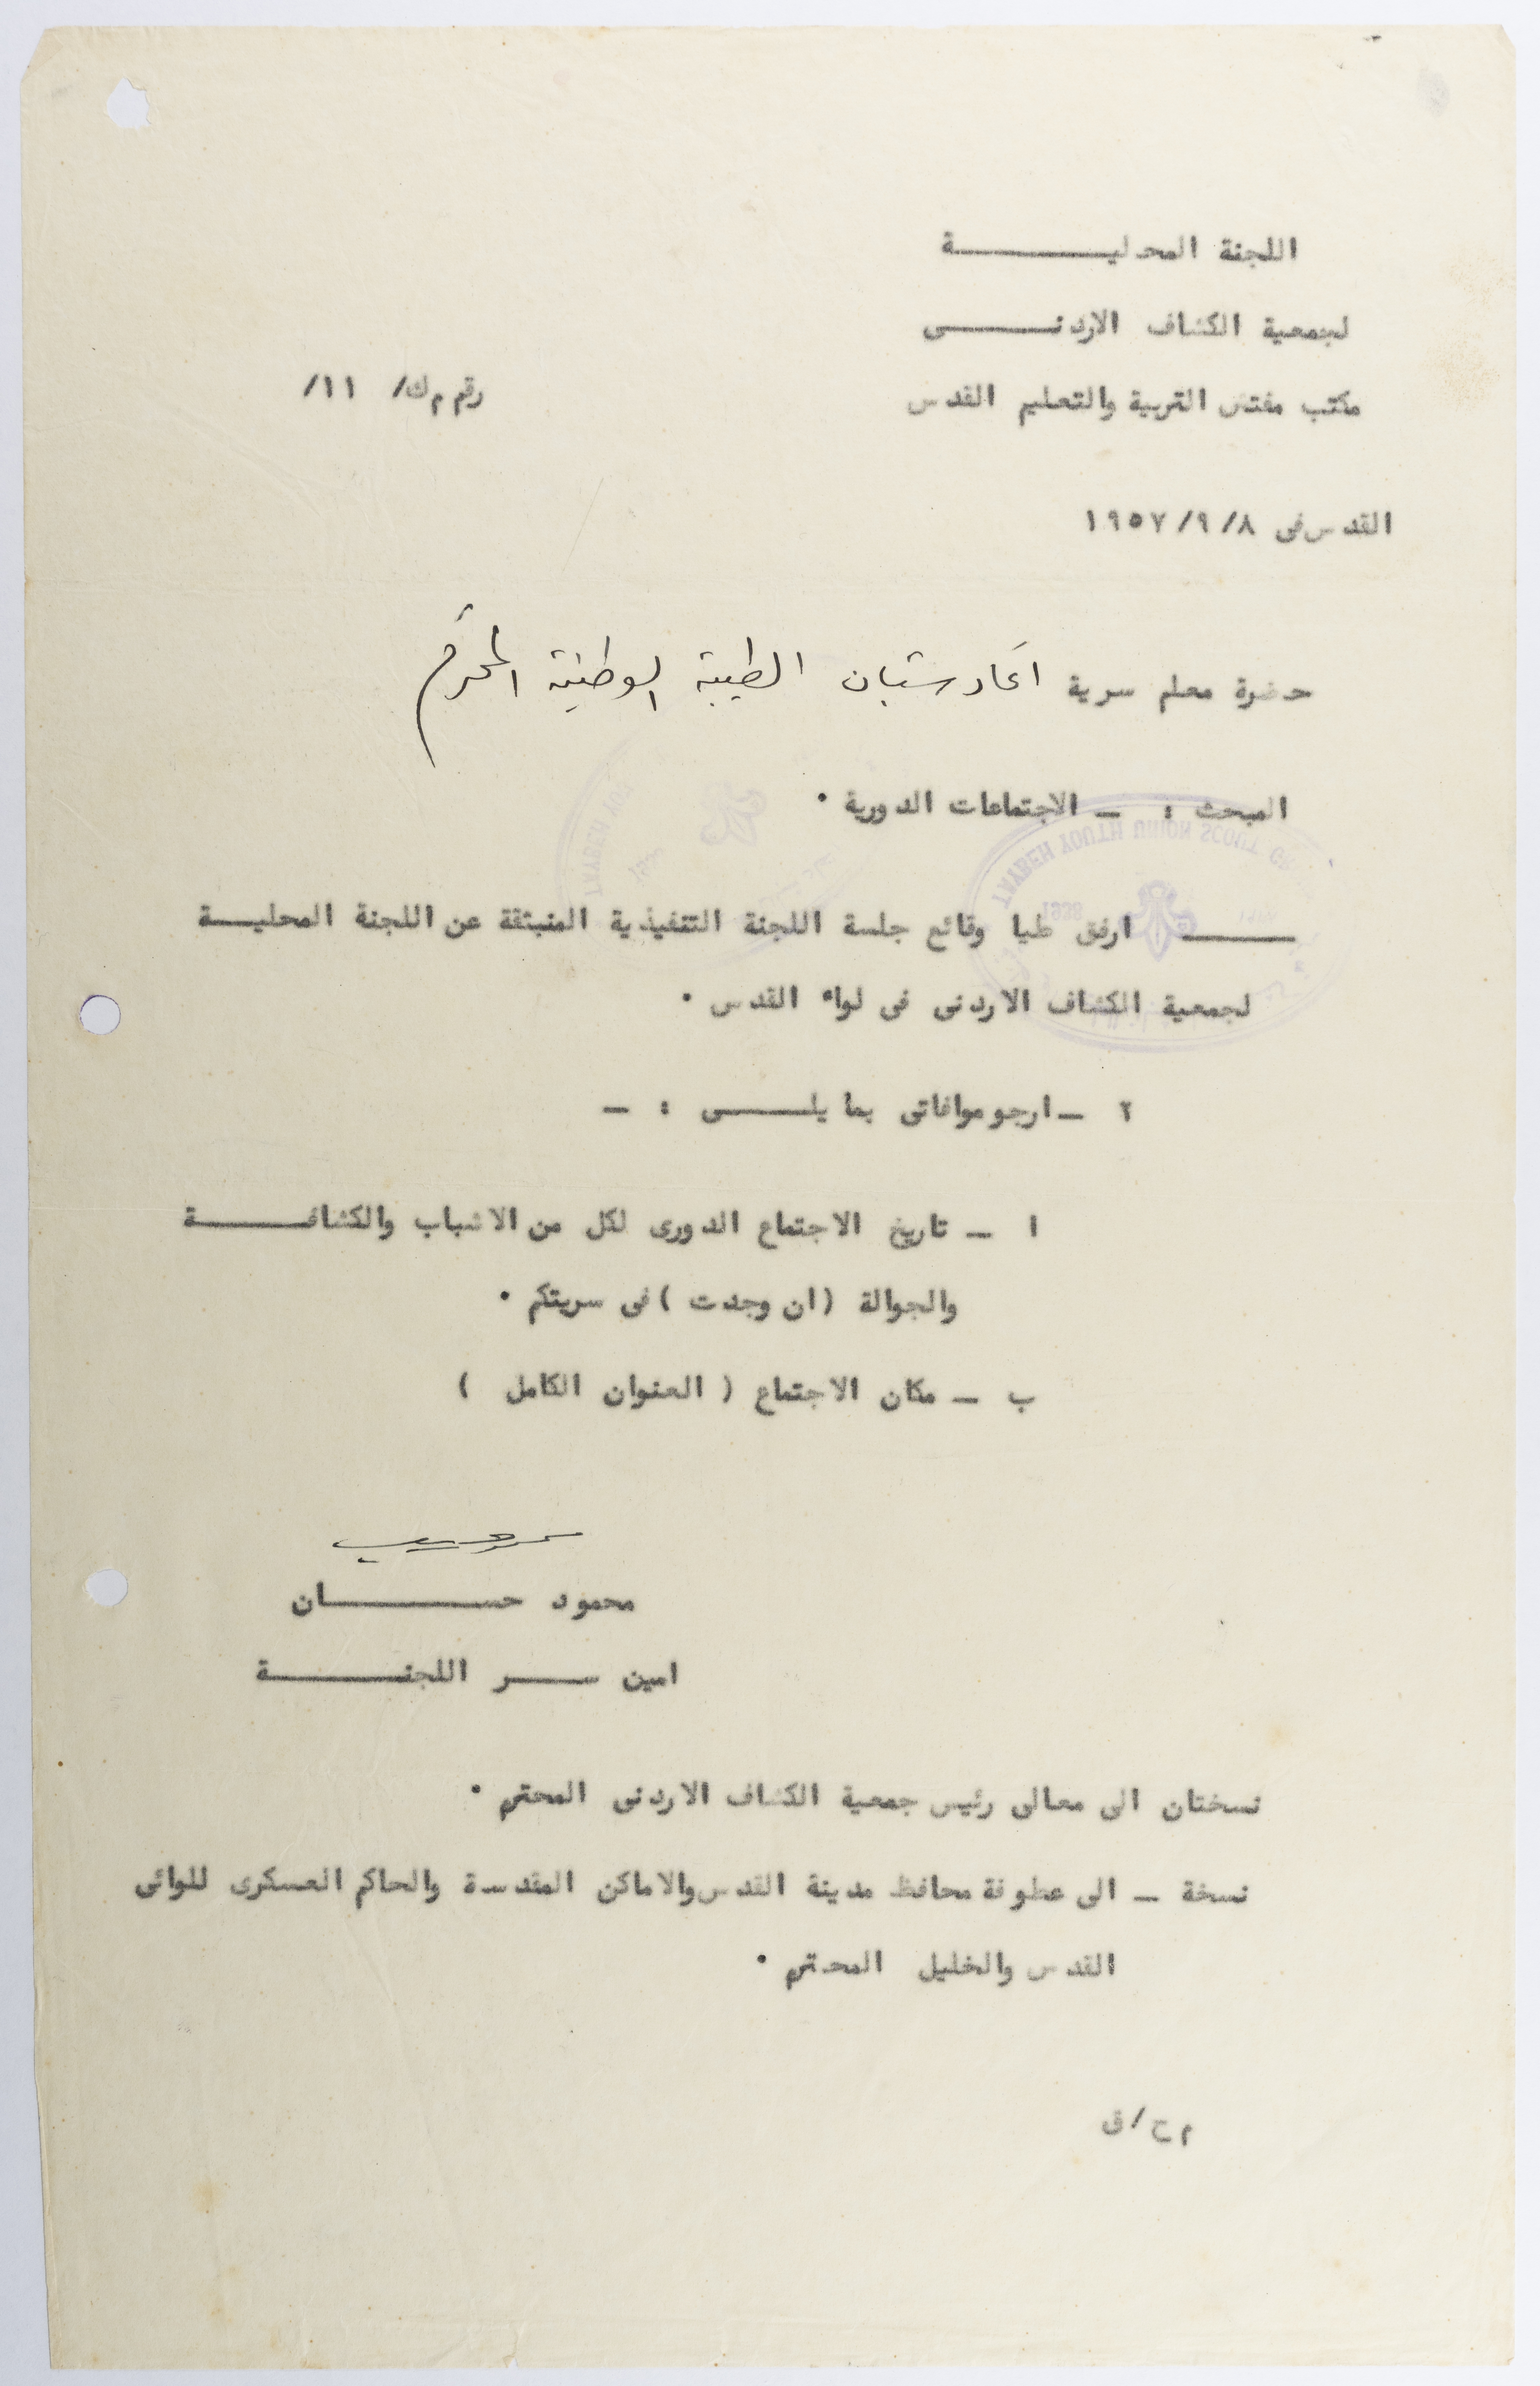 اللجنة المحليـــــــــة
لجمعية الكشاف الاردنـــــــى
مكتب مفتش التربية والتعليم القدس
رقم م ك/ ١١/
القدس فى ٨/ ٩/ ١٩٥٧
حضرة معلم سرية اتحاد شبان الطيبة الوطنية المحترم
المبحث : ـ الاجتماعات الدورية ٠
TAYBEH YOUTH UNION SCOUT
1938
TAYBEH YOU
ــــــــ ارفق طيا وقائع جلسة اللجنة التنفيذية المنبثقة عن اللجنة المحليـــة
لجمعية الكشاف الاردنى فى لواء القدس ٠
٢ ـ ارجو موافاتى بما يلـــــى : ـ
ا ـ تاريخ الاجتماع الدورى لكل من الاشباب والكشافـــــــة
والجوالة ( ان وجدت ) فى سريتكم ٠
ب ـ مكان الاجتماع ( العنوان الكامل )
محمود حســـــــــان
امين ســــر اللجنـــــــــة
نسختان الى معالى رئيس جمعية الكشاف الاردنى المحترم ٠
نسخة ـ الى عطوفة محافظ مدينة القدس والاماكن المقدسة والحاكم العسكرى للوائى
القدس والخليل المحترم ٠
م ح / ق